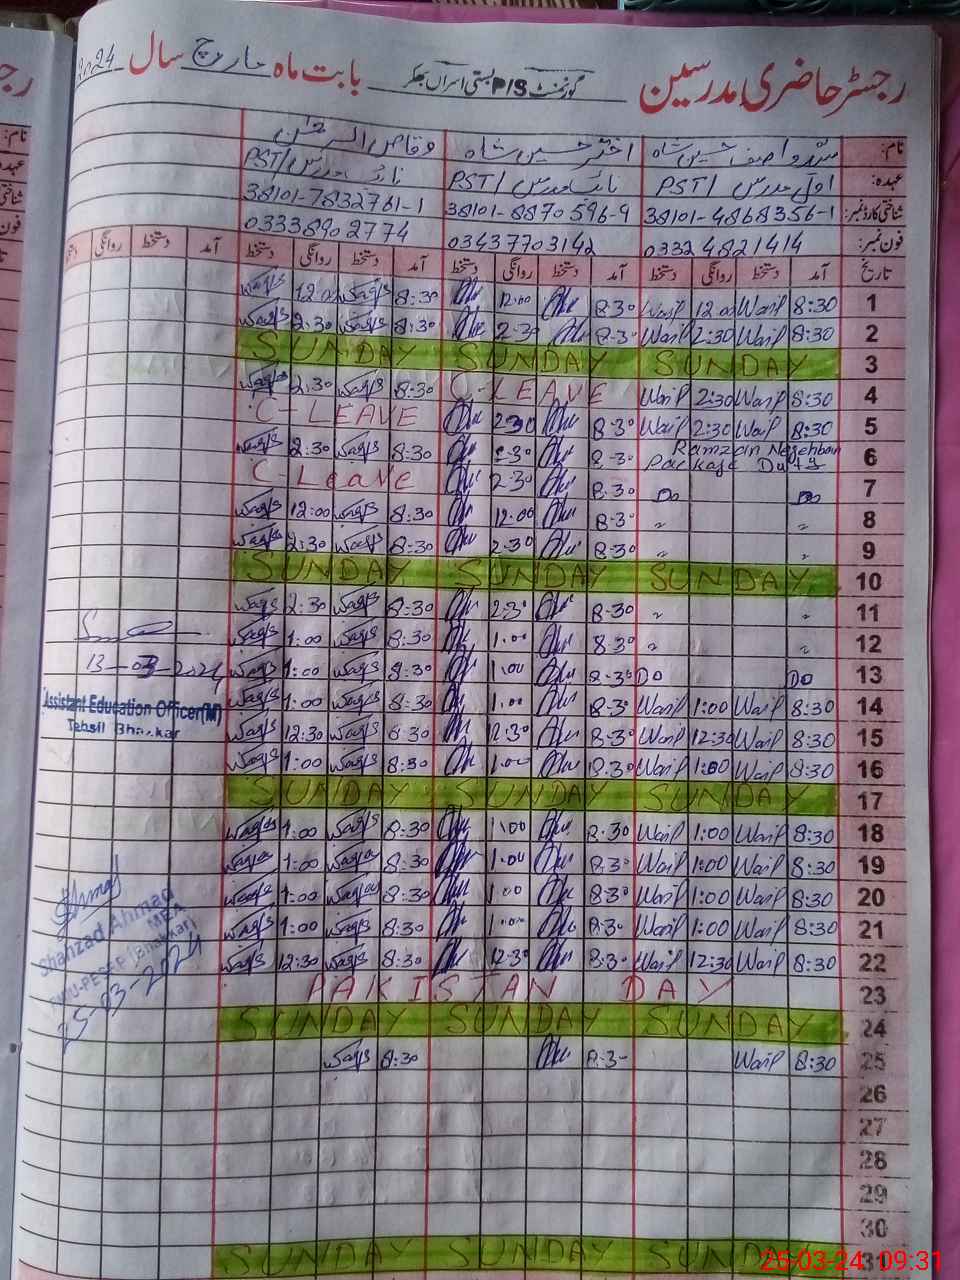 رجسٹر حاضری مدرسین گورنمنٹ P/S بستی اسراں بھکر بابت ماہ مارچ سال 2024
نام: سید واصف حسین شاہ اختر حسین شاہ وقاص الرحمٰن
عہدہ: اول مدرس /PST نائب مدرس /PST نائب مدرس /PST
شناختی کارڈ نمبر: 38101-4868356-1 38101-8870596-9 38101-7832761-1
فون نمبر: 03324821414 03437703142 03338902774
تاریخ آمد دستخط روانگی دستخط آمد دستخط روانگی دستخط آمد دستخط روانگی دستخط آمد دستخط روانگی دستخط
1 8:30 Wasif 12:00 Wasif 8:30 12:00 8:30 Waqas 12:00 Waqas
2 8:30 Wasif 2:30 Wasif 8:30 2:30 8:30 Waqas 2:30 Waqas
3 SUNDAY SUNDAY SUNDAY
4 8:30 Wasif 2:30 Wasif C-LEAVE 8:30 Waqas 2:30 Waqas
5 8:30 Wasif 2:30 Wasif 8:30 2:30 C-LEAVE
6 Ramzan Negehban Package Duty 8:30 2:30 8:30 Waqas 2:30 Waqas
7 Do Do 8:30 2:30 C-Leave
8 " " 8:30 12:00 8:30 Waqas 12:00 Waqas
9 " " 8:30 2:30 8:30 Waqas 2:30 Waqas
10 SUNDAY SUNDAY SUNDAY
11 " " 8:30 2:30 8:30 Waqas 2:30 Waqas
12 " " 8:30 1:00 8:30 Waqas 1:00 Waqas
13 Do Do 8:30 1:00 8:30 Waqas 1:00 Waqas
13-03-2024
14 8:30 Wasif 1:00 Wasif 8:30 1:00 8:30 Waqas 1:00 Waqas
Assistant Education Officer(M)
Tehsil Bhakkar
15 8:30 Wasif 12:30 Wasif 8:30 12:30 8:30 Waqas 12:30 Waqas
16 8:30 Wasif 1:00 Wasif 8:30 1:00 8:30 Waqas 1:00 Waqas
17 SUNDAY SUNDAY SUNDAY
18 8:30 Wasif 1:00 Wasif 8:30 1:00 8:30 Waqas 1:00 Waqas
19 8:30 Wasif 1:00 Wasif 8:30 1:00 8:30 Waqas 1:00 Waqas
20 8:30 Wasif 1:00 Wasif 8:30 1:00 8:30 Waqas 1:00 Waqas
21 8:30 Wasif 1:00 Wasif 8:30 1:00 8:30 Waqas 1:00 Waqas
22 8:30 Wasif 12:30 Wasif 8:30 12:30 8:30 Waqas 12:30 Waqas
Shahzad Ahmad
MEA
PMIU-PESRP (Bhakkar)
25-03-2024
23 PAKISTAN DAY
24 SUNDAY SUNDAY SUNDAY
25 8:30 Wasif 8:30 8:30 Waqas
26
27
28
29
30
31 SUNDAY SUNDAY SUNDAY
25-03-24 09:31